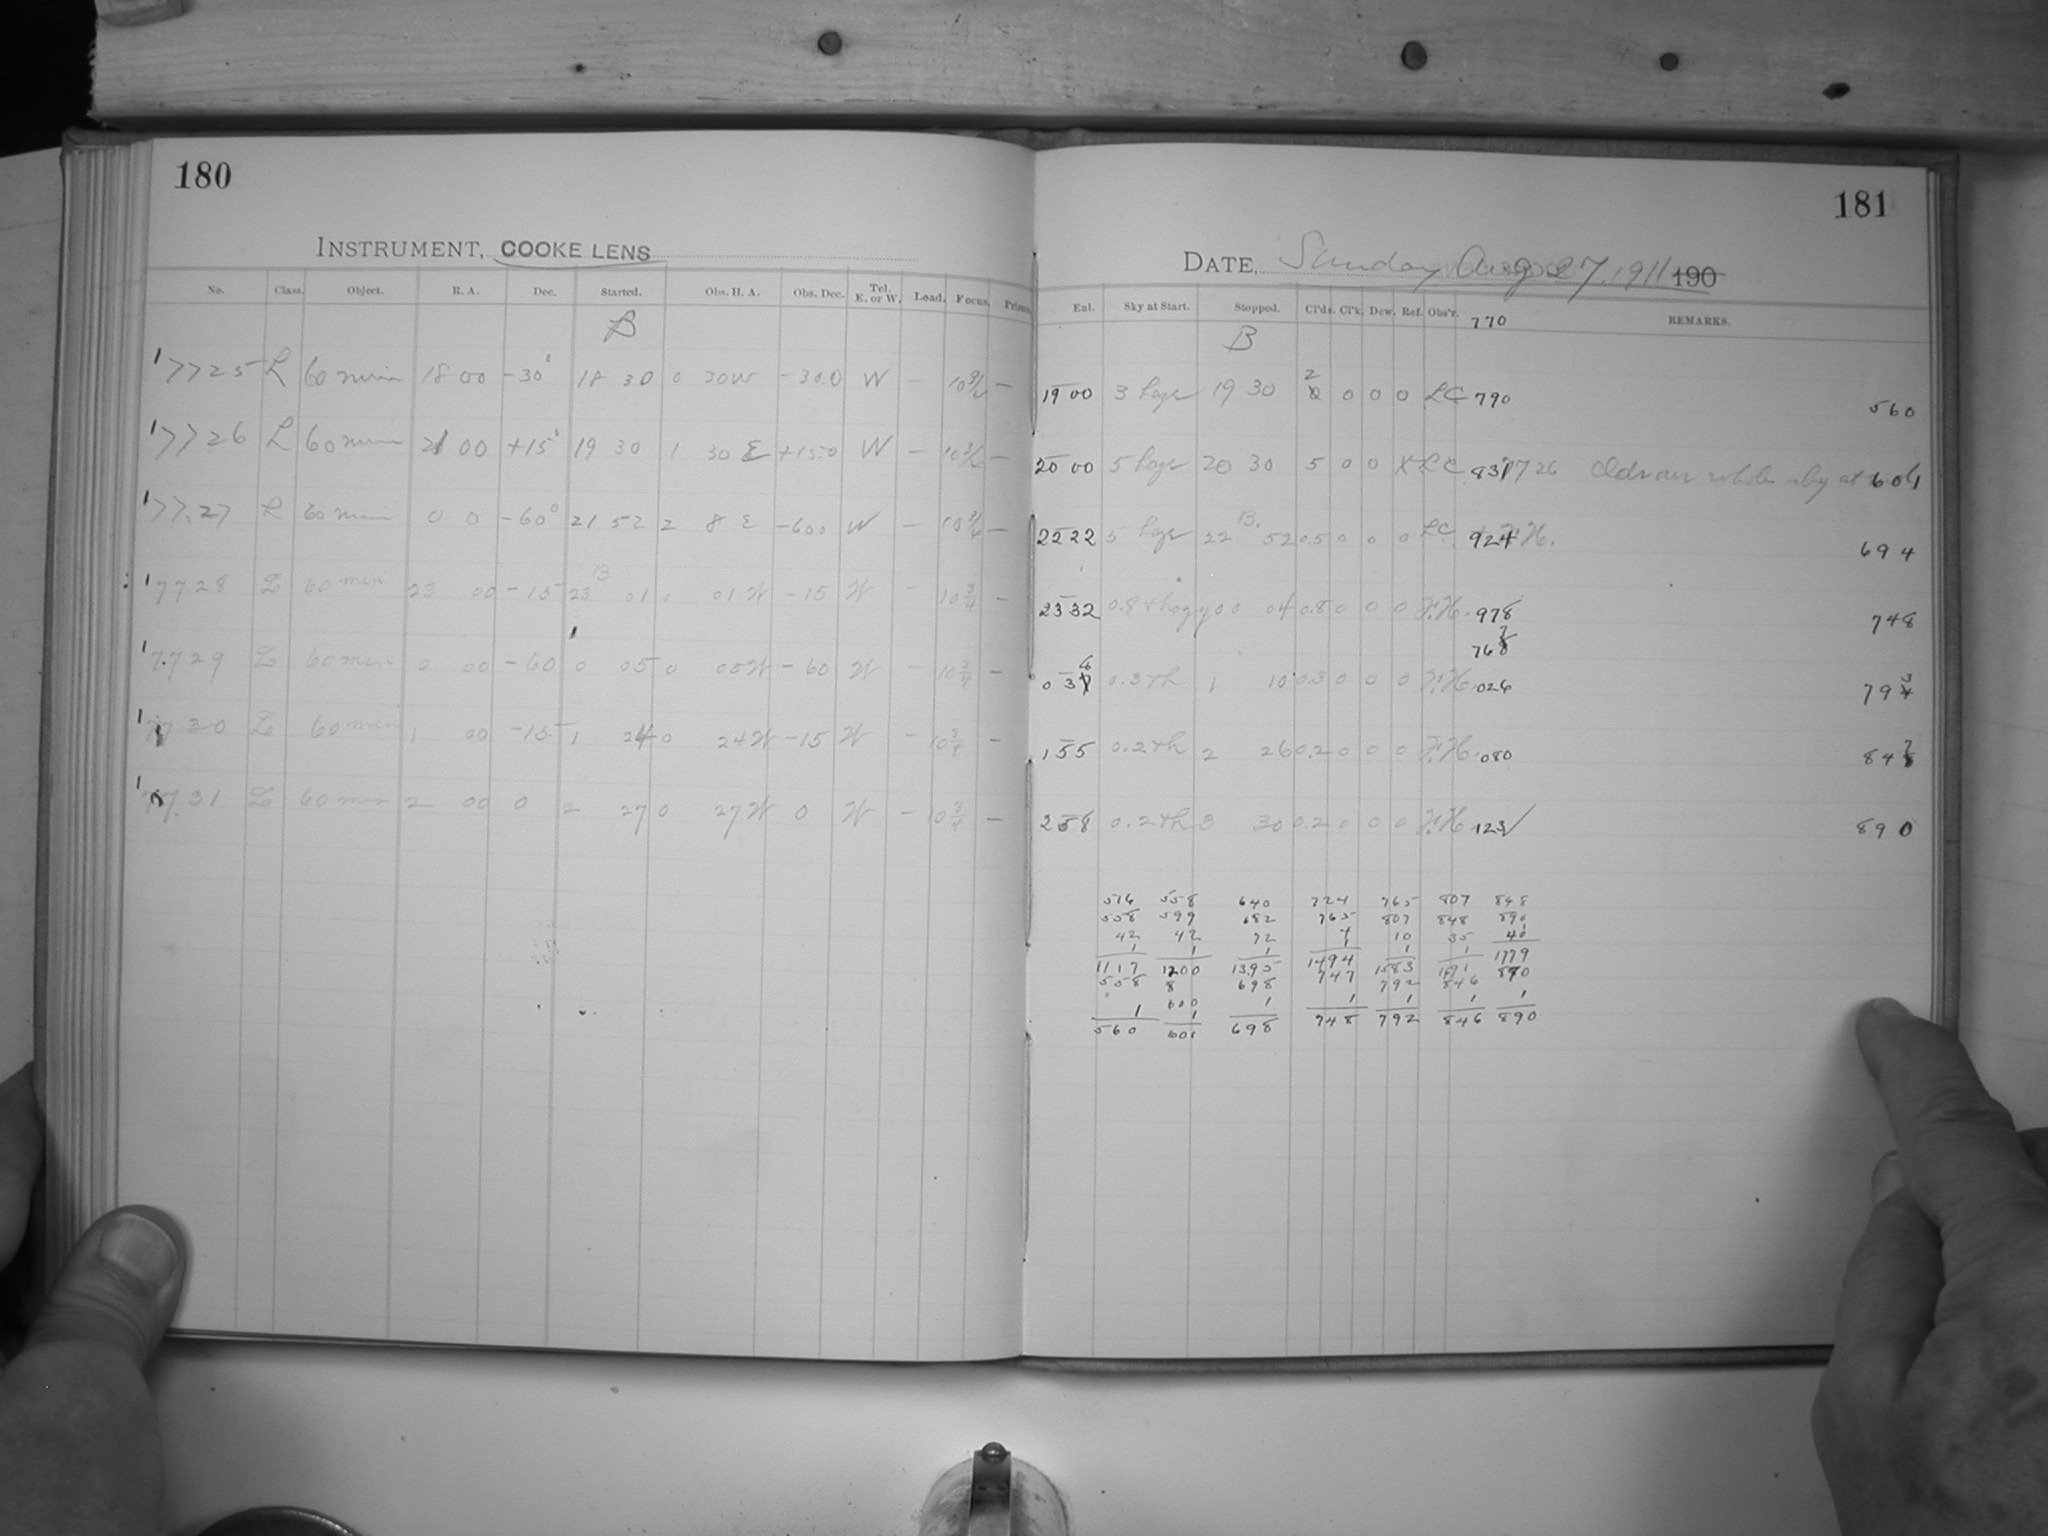 180
INSTRUMENT, COOKE LENS
No. Class. Object. R. A. Dec. Started. Obs. H. A. Obs. Dec. Tel. E. or W. Load. Focus. Prisms.
B
17725 L 60 min 18 00 -30° 18 30 0 30W -30.0 W - 10 3/4 -
17726 L 60 min 21 00 +15° 19 30 1 30 E +15.0 W - 10 3/4 -
17727 L 60 min 0 0 -60° 21 52 2 8 E -60.0 W - 10 3/4 -
B
17728 L 60 min 23 00 -15 23 01 0 01 W -15 W - 10 3/4 -
17729 L 60 min 0 00 -60 0 05 0 05 W -60 W - 10 3/4 -
17730 L 60 min 1 00 -15 1 24 0 24 W -15 W - 10 3/4 -
17731 L 60 min 2 00 0 2 27 0 27 W 0 W - 10 3/4 -
181
DATE, Sunday Aug 27, 1911 190
Eul. Sky at Start. Stopped. Cl'ds. Cl'k. Dew. Ref. Obs'r. 770 REMARKS.
B
19 00 3 haze 19 30 2 0 0 0 LC 790 560
20 00 5 haze 20 30 5 0 0 X LC 831 17726 Clds over whole sky at 601
22 22 5 haze 22 52 0.5 0 0 0 LC 924 F.H. 694
23 32 0.8 th 00 04 0.8 0 0 0 F.H. 978 748
0 3 0.3 th 1 10 0.3 0 0 0 F.H. 026 793
1 55 0.2 th 2 26 0.2 0 0 0 F.H. 080 847
2 58 0.2 th 3 30 0.2 0 0 0 F.H. 123 890
516 558 640 724 765 807 848
558 599 682 765 807 848 890
42 42 72 10 35 40
1 1 1 1 1 1
1117 1200 1395 1494 1583 1779
558 698 747 792 846 890
600
1 1 1 1 1 1 1
560 601 698 748 792 846 890